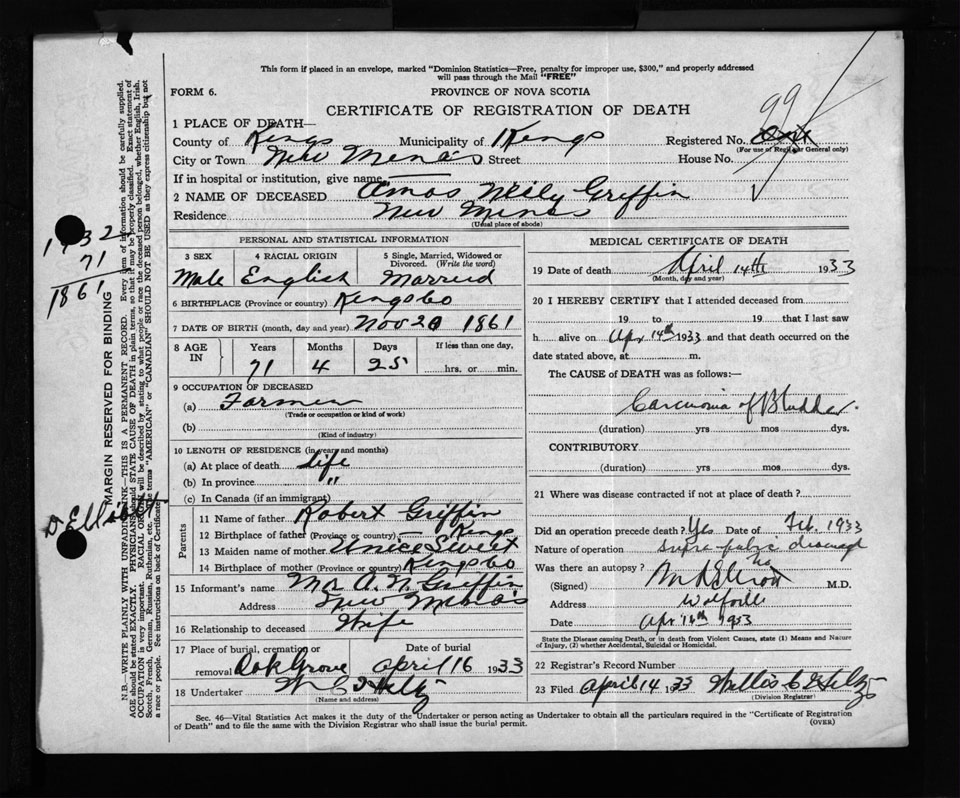 This form if placed in an envelope, marked "Dominion Statistics—Free, penalty for improper use, $300," and properly addressed
will pass through the Mail "FREE"
FORM 6.
PROVINCE OF NOVA SCOTIA
CERTIFICATE OF REGISTRATION OF DEATH
99
1 PLACE OF DEATH—
County of Kings Municipality of Kings Registered No.
(For use of Registrar General only)
City or Town New Minas Street House No.
If in hospital or institution, give name
2 NAME OF DECEASED Amos Neily Griffin
Residence New Minas
(Usual place of abode)
PERSONAL AND STATISTICAL INFORMATION
3 SEX 4 RACIAL ORIGIN 5 Single, Married, Widowed or Divorced. (Write the word)
Male English Married
6 BIRTHPLACE (Province or country) Kings Co
7 DATE OF BIRTH (month, day and year) Nov 20 1861
8 AGE IN Years Months Days If less than one day,
71 4 25 hrs. or min.
9 OCCUPATION OF DECEASED
(a) Farmer
(Trade or occupation or kind of work)
(b)
(Kind of industry)
10 LENGTH OF RESIDENCE (in years and months)
(a) At place of death life
(b) In province "
(c) In Canada (if an immigrant)
Parents
11 Name of father Robert Griffin
12 Birthplace of father (Province or country) Kings
13 Maiden name of mother Unice Sweet
14 Birthplace of mother (Province or country) Kings Co
15 Informant's name Mrs A. N. Griffin
Address New Minas
16 Relationship to deceased Wife
17 Place of burial, cremation or removal Oak Grove April 16 1933
Date of burial
18 Undertaker
(Name and address)
MEDICAL CERTIFICATE OF DEATH
19 Date of death April 14TH 1933
(Month, day and year)
20 I HEREBY CERTIFY that I attended deceased from
19 to 19 that I last saw
h alive on Apr 14th 1933 and that death occurred on the
date stated above, at m.
The CAUSE of DEATH was as follows:—
Carcinoma of Bladder
(duration) yrs mos dys.
CONTRIBUTORY
(duration) yrs mos dys.
21 Where was disease contracted if not at place of death?
Did an operation precede death? Yes Date of Feb. 1933
Nature of operation supra pubic
Was there an autopsy? No
(Signed) M.D.
Address Wolfville
Date Apr 14th 1933
State the Disease causing Death, or in death from Violent Causes, state (1) Means and Nature
of Injury, (2) whether Accidental, Suicidal or Homicidal.
22 Registrar's Record Number
23 Filed April 14 1933
(Division Registrar)
Sec. 46—Vital Statistics Act makes it the duty of the Undertaker or person acting as Undertaker to obtain all the particulars required in the "Certificate of Registration
of Death" and to file the same with the Division Registrar who shall issue the burial permit.
(OVER)
1932
71
1861
D Elliott
MARGIN RESERVED FOR BINDING
N.B.—WRITE PLAINLY WITH UNFADING INK—THIS IS A PERMANENT RECORD. Every item of information should be carefully supplied.
AGE should be stated EXACTLY. PHYSICIANS should STATE CAUSE OF DEATH in plain terms, so that it may be properly classified. Exact statement of
OCCUPATION is very important. RACIAL ORIGIN will be described by stating to what people or race the deceased person belonged, whether English, Irish,
Scotch, French, German, Russian, Ruthenian, etc. The terms "AMERICAN" or "CANADIAN" SHOULD NOT BE USED as they express citizenship but not
a race or people. See instructions on back of Certificate